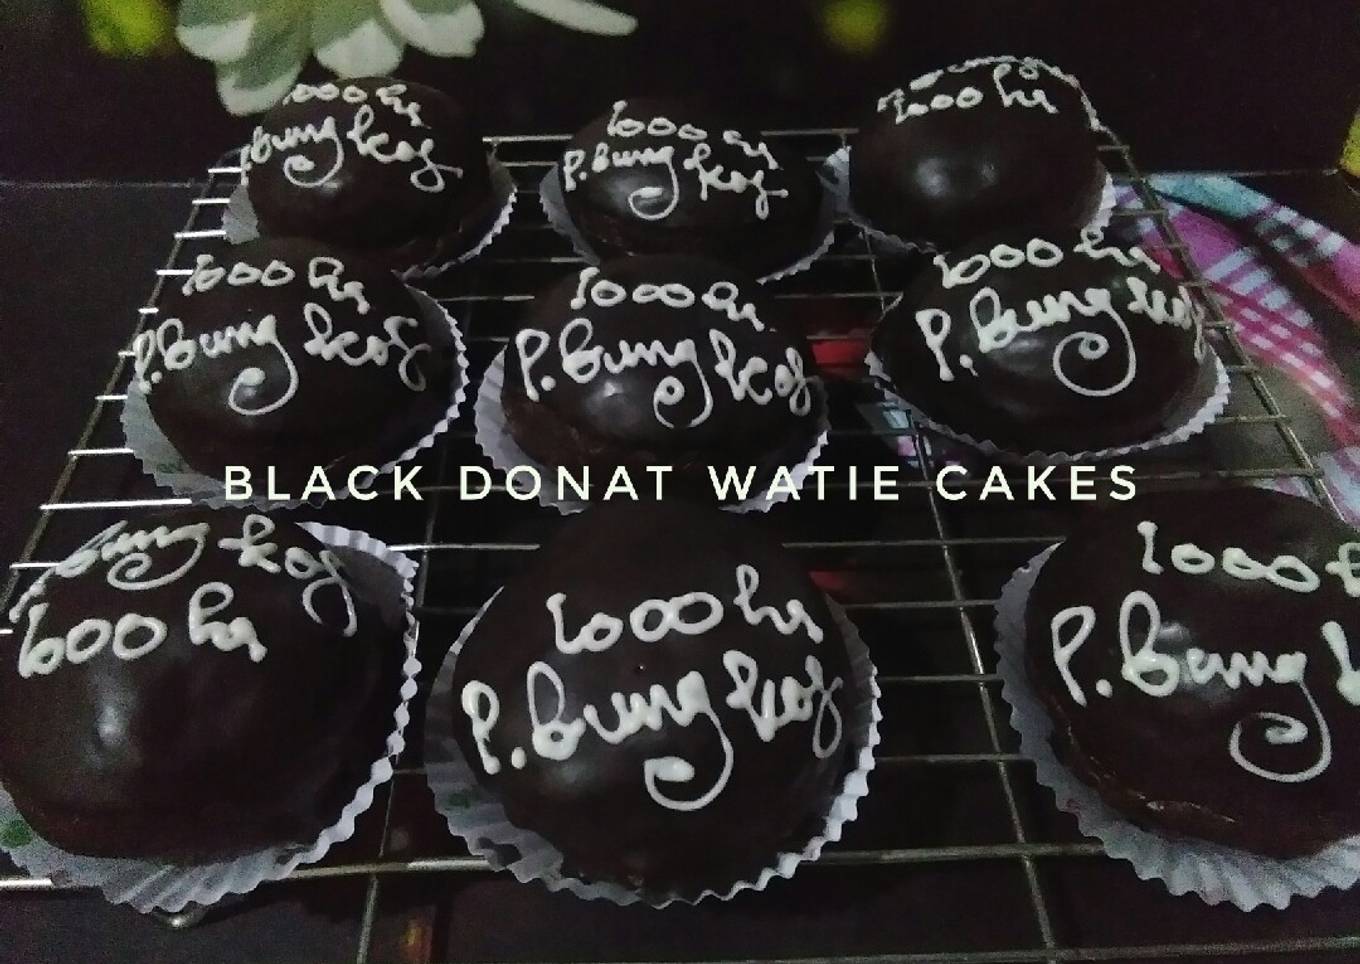 1000 hr
P.Bung kos
1000 hr
P.Bung kos
1000 hr
1000 hr
P.Bung kos
1000 hr
P.Bung kos
1000 hr
P.Bung kos
BLACK DONAT WATIE CAKES
Bung kos
1000 hr
1000 hr
P.Bung kos
1000
P.Bung